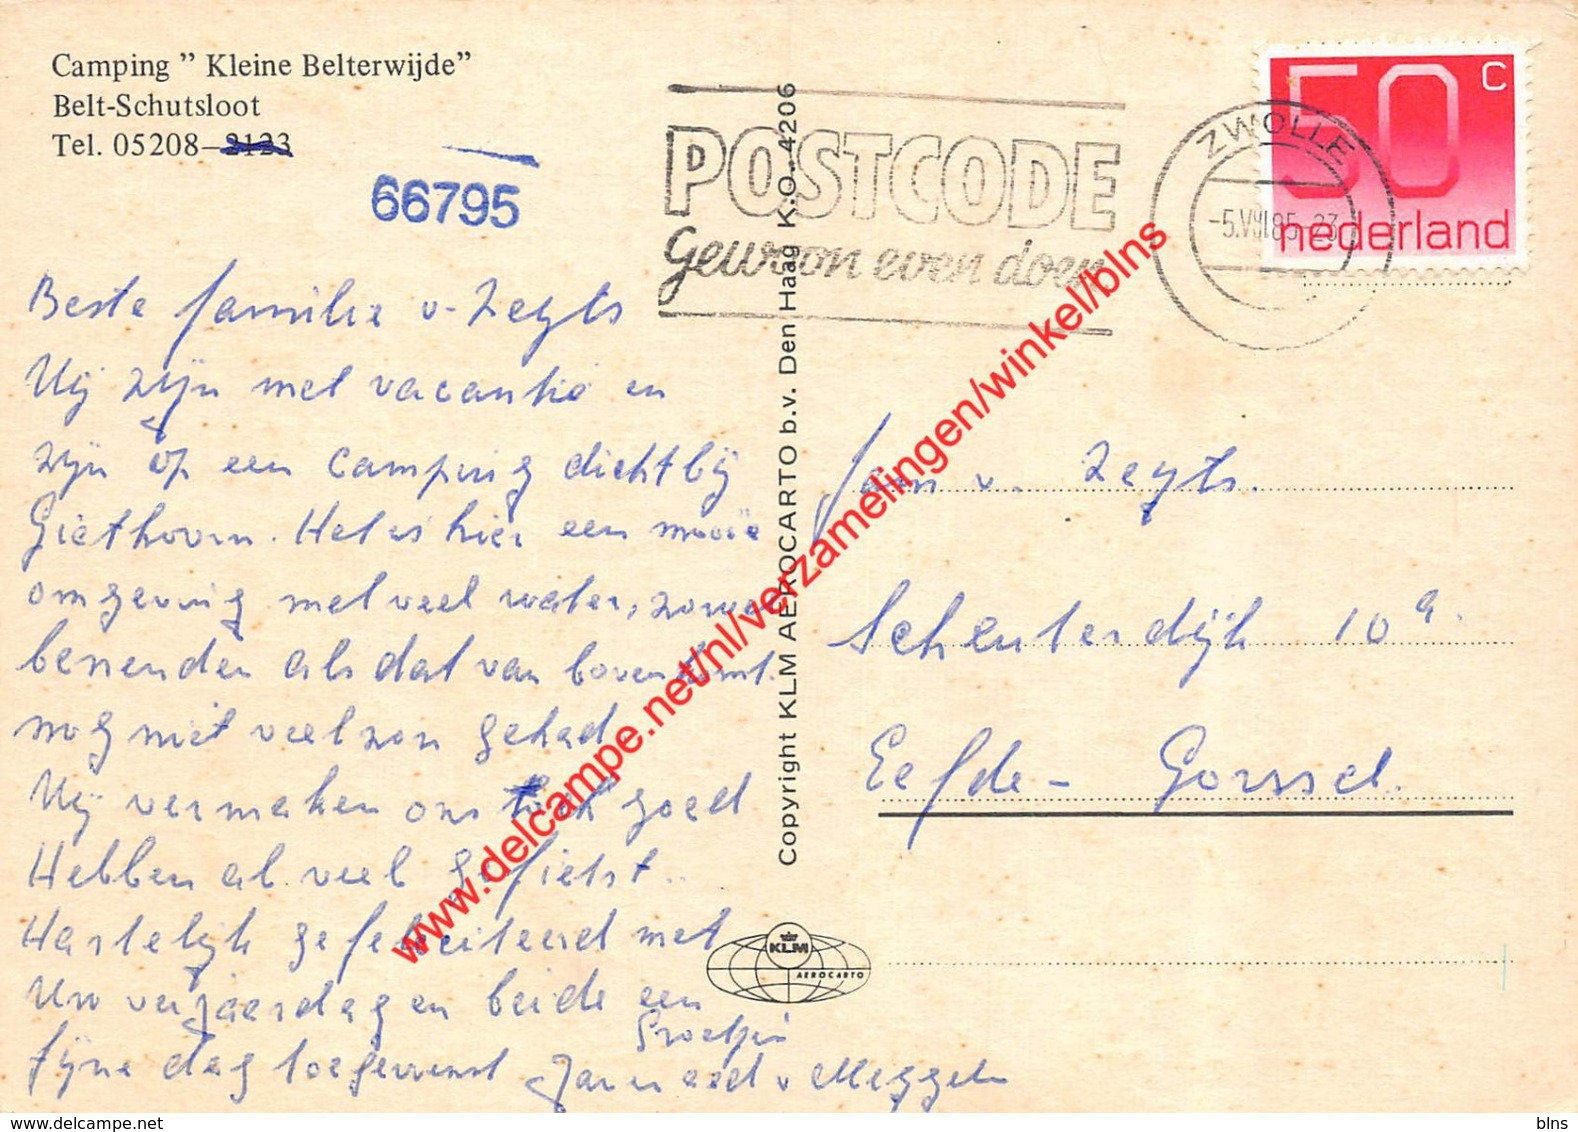 Camping ” Kleine Belterwijde”
Belt-Schutsloot
Tel. 05208–2123
66795
POSTCODE
gewoon even doen
ZWOLLE
-5.VIII.85-23
50 C
nederland
Beste familie v. Zeyts
Wij zijn met vacantie en
zijn op een camping dichtbij
Giethoorn. Het is hier een mooie
omgeving met veel water, zowel
benenden als dat van boven komt.
nog niet veel zon gehad.
Wij vermaken ons toch goed
Hebben al veel gefietst..
Hartelijk gefeliciteerd met
Uw verjaardag en beide een
fijne dag toegewenst
Groetjes
v Meggelen
Copyright KLM AEROCARTO b.v. Den Haag K.O. 4206
KLM
AEROCARTO
Jan v. Zeyts.
Scheuterdijk 10a.
Eefde - Gorssel.
www.delcampe.net/nl/verzamelingen/winkel/blns
blns